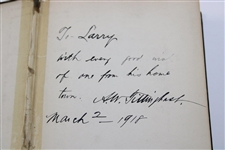 To Larry
with every good wish
of one from his home
town. A.W. Tillinghast.
March 2 - 1918